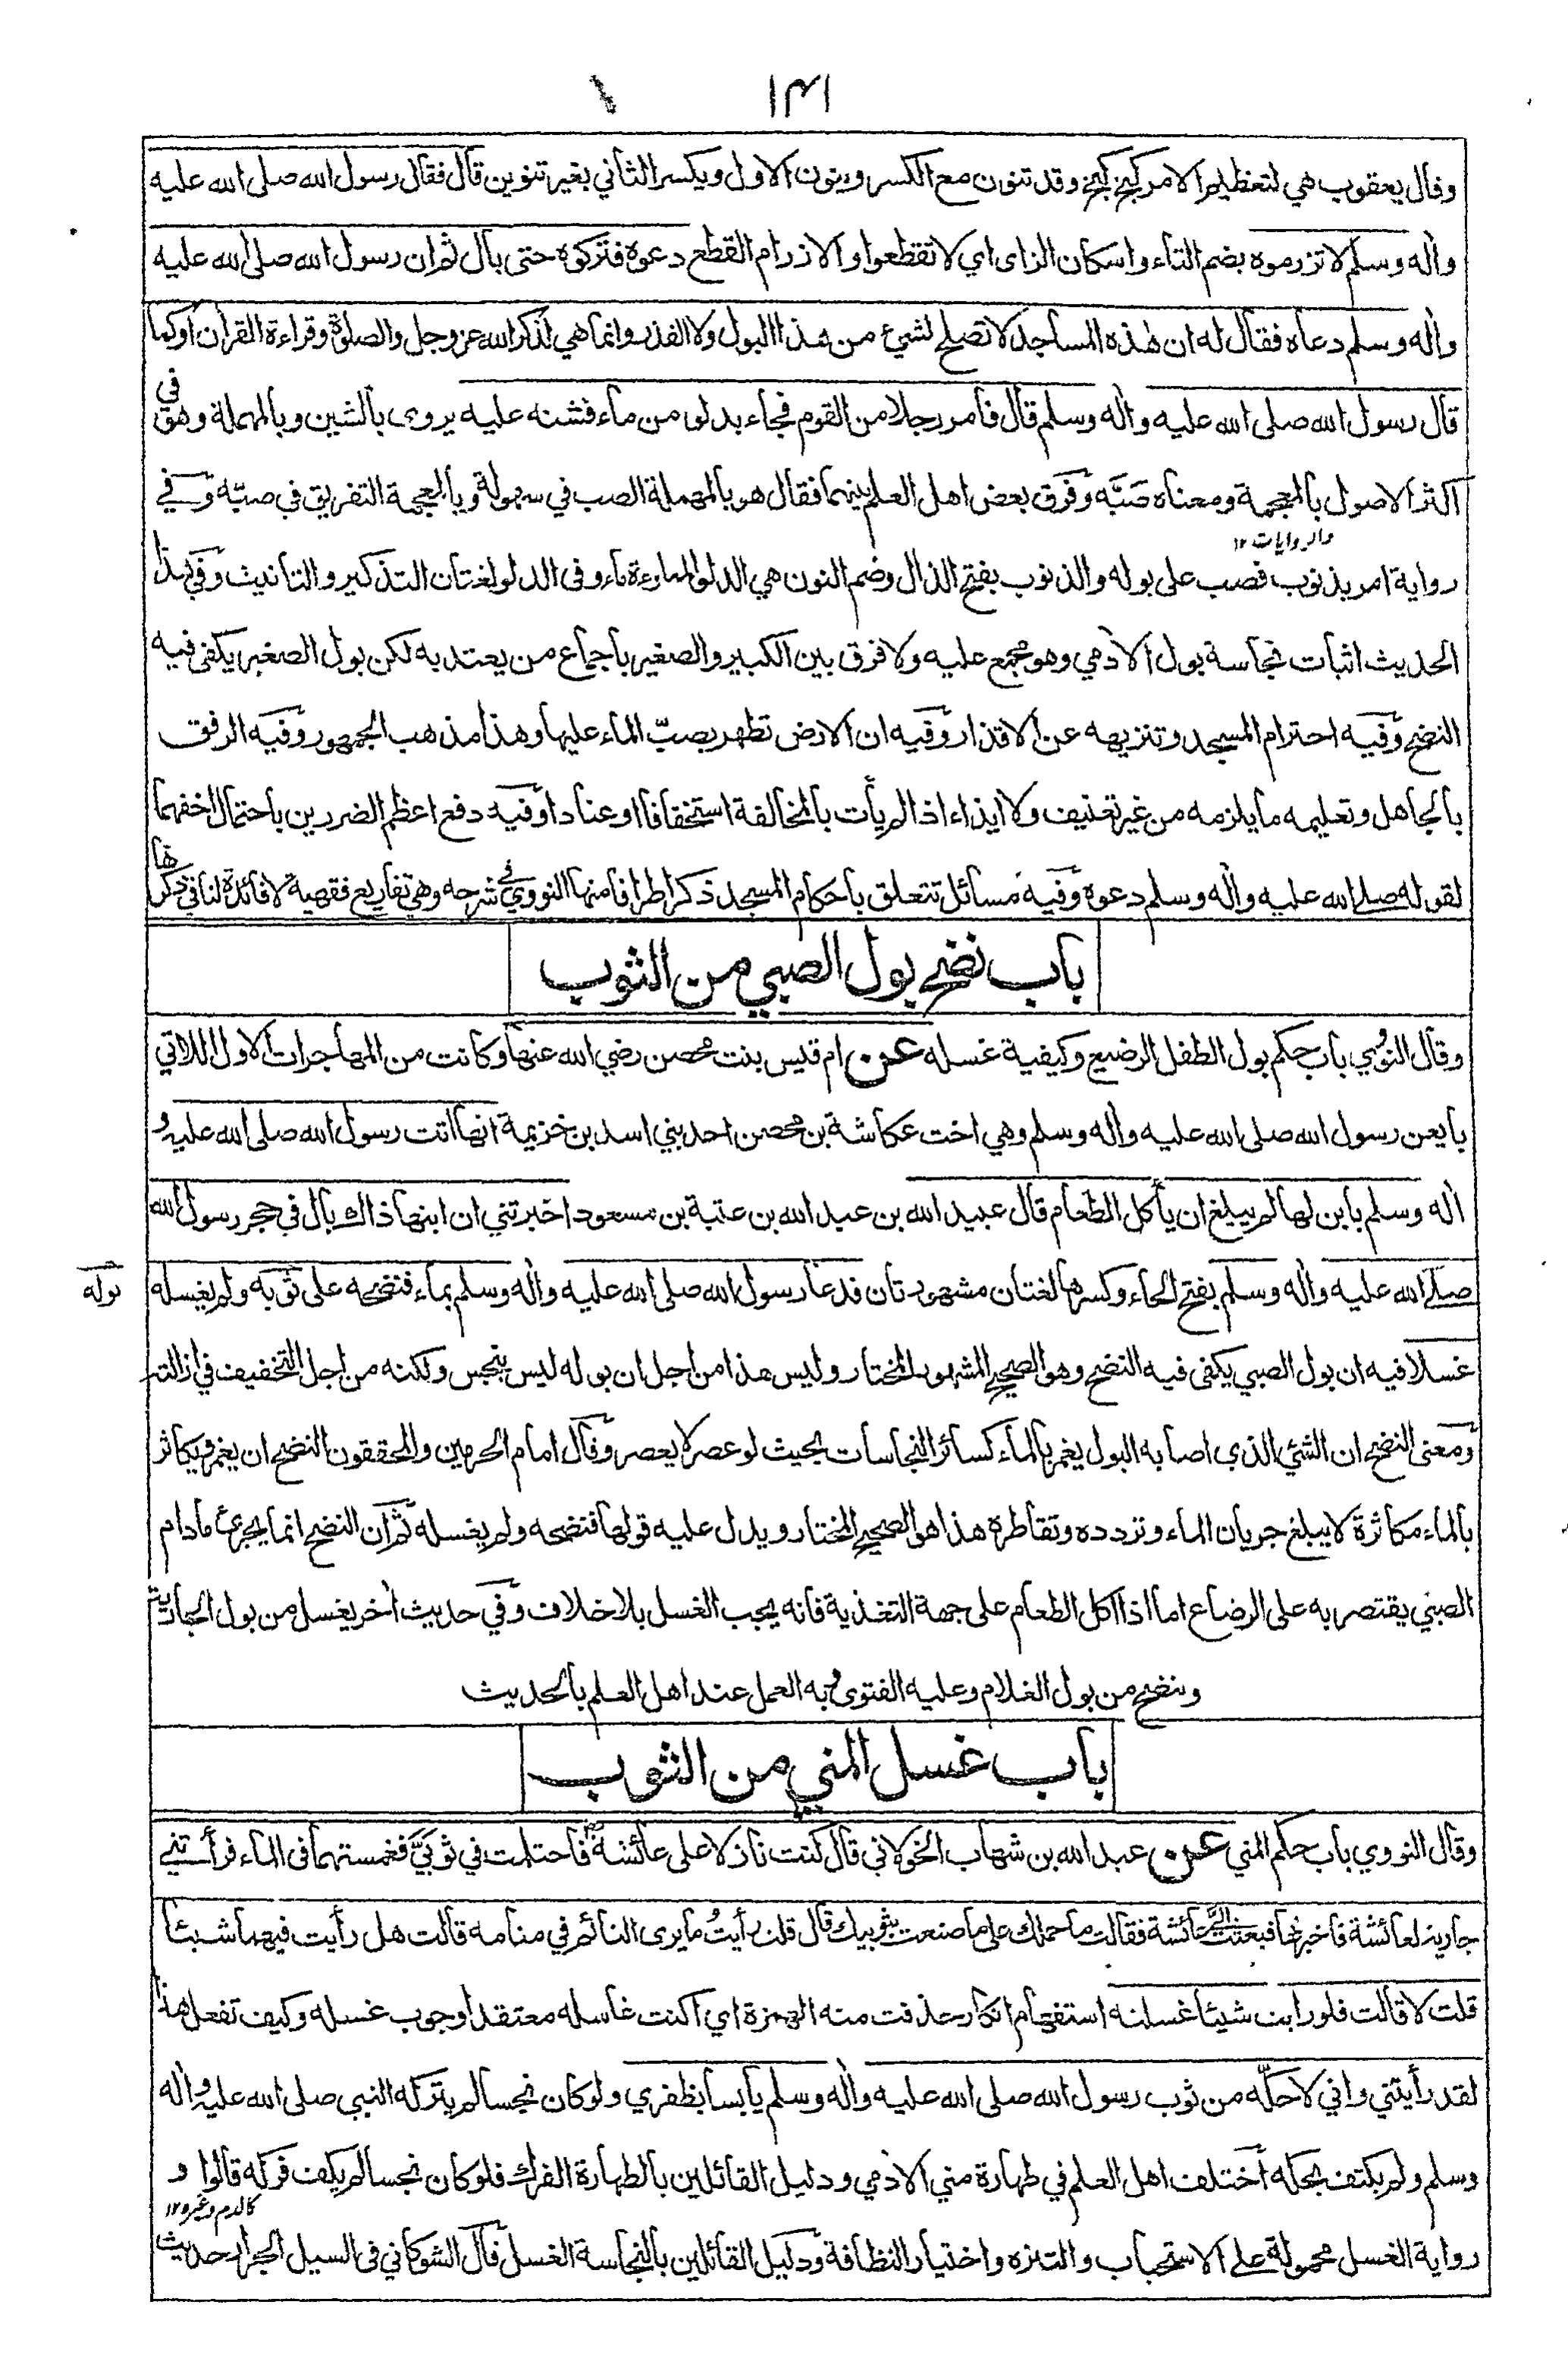 ١٣١
وقال يعقوب هي لتعظيم الامر كبخ بخ وقد تنون مع الكسر وينون الاول ويكسر الثاني بغير تنوين قال فقال رسول الله صلى الله عليه
واٰله وسلم لا تزرموه بضم التاء واسكان الزاى اي لا تقطعوا والازرام القطع دعوه فتركوه حتى بال ثم ان رسول الله صلى الله عليه
واٰله وسلم دعاه فقال له ان هٰذه المساجد لا تصلح لشيئ من هذا البول ولا القذر وانما هي لذكر الله عز وجل والصلوٰة وقراءة القراٰن اوكما
قال رسول الله صلى الله عليه واٰله وسلم قال فأمر رجلا من القوم فجاء بدلو من ماء فشنه عليه يروى بالشين وبالمهملة وهو في
اكثر الاصول والروايات١٢ بالمعجمة ومعناه صَبَّه وفرق بعض اهل العلم بينهما فقال هو بالمهملة الصب في سهولة وبالمعجمة التفريق في صبّه وفي
رواية امر بذنوب فصب على بوله والذنوب بفتح الذال وضم النون هي الدلو المملوءة ماء وفى الدلو لغتان التذكير والتانيث وفي هذا
الحديث اثبات نجاسة بول الاٰدمي وهو مجمع عليه ولا فرق بين الكبير والصغير باجماع من يعتد به لكن بول الصغير يكفى فيه
النضح وفيه احترام المسجد وتنزيهه عن الاقذار وفيه ان الارض تطهر بصبّ الماء عليها وهذا مذهب الجمهور وفيه الرفق
بالجاهل وتعليمه ما يلزمه من غير تعنيف ولا ايذاء اذا لم يأت بالمخالفة استخفافا او عنادا وفيه دفع اعظم الضررين باحتمال اخفهما
لقوله صلى الله عليه واٰله وسلم دعوه وفيه مسائل تتعلق باحكام المسجد ذكر اطرافا منها النووي في شرحه وهي تفاريع فقهية لا فائدة لنا في ذكرها
باب نضح بول الصبي من الثوب
وقال النووي باب حكم بول الطفل الرضيع وكيفية غسله عن ام قيس بنت محصن رضي الله عنها وكانت من المهاجرات الاول اللاتي
بايعن رسول الله صلى الله عليه واٰله وسلم وهي اخت عكاشة بن محصن احد بني اسد بن خزيمة انها اتت رسول الله صلى الله عليه و
اٰله وسلم بابن لها لم يبلغ ان يأكل الطعام قال عبيد الله بن عبد الله بن عتبة بن مسعود اخبرتني ان ابنها ذاك بال في حجر رسول الله
صلى الله عليه واٰله وسلم بفتح الحاء وكسرها لغتان مشهورتان فدعا رسول الله صلى الله عليه واٰله وسلم بماء فنضحه على ثوبه ولم يغسله
بوله
غسلا فيه ان بول الصبي يكفى فيه النضح وهو الصحيح المشهور المختار وليس هذا من اجل ان بوله ليس بنجس ولكنه من اجل التخفيف في ازالته
ومعنى النضح ان الشئ الذي اصابه البول يغمر بالماء كسائر النجاسات بحيث لو عصر لا يعصر وقال امام الحرمين والمحققون النضح ان يغمر ويكاثر
بالماء مكاثرة لا يبلغ جريان الماء وتردده وتقاطره هذا هو الصحيح المختار ويدل عليه قولها فنضحه ولم يغسله ثم ان النضح انما يجزئ مادام
الصبي يقتصر به على الرضاع اما اذا اكل الطعام على جهة التغذية فانه يجب الغسل بلا خلاف وفي حديث اٰخر يغسل من بول الجارية
وينضح من بول الغلام وعليه الفتوى وبه العمل عند اهل العلم بالحديث
باب غسل المني من الثوب
وقال النووي باب حكم المني عن عبد الله بن شهاب الخولاني قال كنت نازلا على عائشة فاحتلمت في ثوبيّ فغمستهما فى الماء فرأتني
جارية لعائشة فاخبرتها فبعثت الي عائشة فقالت ما حملك على ما صنعت بثوبيك قال قلت رأيت ما يرى النائم في منامه قالت هل رأيت فيهما شيئا
قلت لا قالت فلو رايت شيئا غسلته استفهام انكار حذفت منه الهمزة اي أكنت غاسله معتقدا وجوب غسله وكيف تفعل هذا
لقد رأيتني واني لاحكّه من ثوب رسول الله صلى الله عليه واٰله وسلم يابسا بظفري ولو كان نجسا لم يتركه النبي صلى الله عليه واٰله
وسلم ولم يكتف بحكه اختلف اهل العلم في طهارة مني الاٰدمي ودليل القائلين بالطهارة الفرك فلو كان نجسا لم يكف فركه قالوا و
كالدم وغيره١٢
رواية الغسل محمولة على الاستحباب والتنزه واختيار النظافة ودليل القائلين بالنجاسة الغسل قال الشوكاني فى السيل الجرار حديث